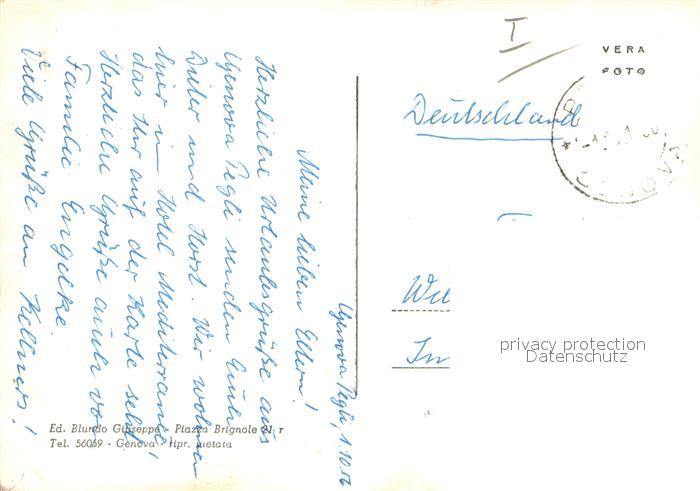 Genova Pegli, 1.10.56
Meine lieben Eltern!
Herzliche Urlaubsgrüße aus
Genova Pegli senden Euch
Dieter und Horst. Wir wohnen
hier im Hotel Mediterranée,
das Ihr auf der Karte seht!
Herzliche Grüße auch von
Familie Engelke.
Viele Grüße an Kellners!
I
VERA
FOTO
Deutschland
GENOVA
privacy protection
Datenschutz
Ed. Blundo Giuseppe - Piazza Brignole 21 r
Tel. 56059 - Genova - ripr. vietata